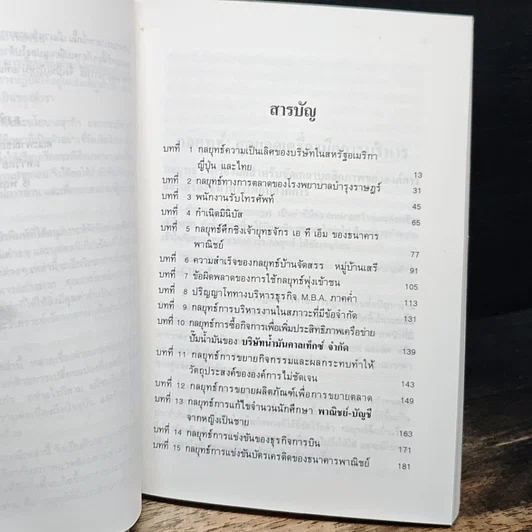 สารบัญ
บทที่ 1 กลยุทธ์ความเป็นเลิศของบริษัทในสหรัฐอเมริกา
ญี่ปุ่น และไทย 13
บทที่ 2 กลยุทธ์ทางการตลาดของโรงพยาบาลบำรุงราษฎร์ 31
บทที่ 3 พนักงานรับโทรศัพท์ 45
บทที่ 4 กำเนิดมินิบัส 65
บทที่ 5 กลยุทธ์ศึกชิงเจ้ายุทธจักร เอ ที เอ็ม ของธนาคาร
พาณิชย์ 77
บทที่ 6 ความสำเร็จของกลยุทธ์บ้านจัดสรร หมู่บ้านเสรี 91
บทที่ 7 ข้อผิดพลาดของการใช้กลยุทธ์พุ่งเข้าชน 105
บทที่ 8 ปริญญาโททางบริหารธุรกิจ M.B.A. ภาคค่ำ 113
บทที่ 9 กลยุทธ์การบริหารงานในสภาวะที่มีข้อจำกัด 131
บทที่ 10 กลยุทธ์การซื้อกิจการเพื่อเพิ่มประสิทธิภาพเครือข่าย
ปั๊มน้ำมันของ บริษัทน้ำมันคาลเท็กซ์ จำกัด 139
บทที่ 11 กลยุทธ์การขยายกิจกรรมและผลกระทบทำให้
วัตถุประสงค์ขององค์การไม่ชัดเจน 143
บทที่ 12 กลยุทธ์การขยายผลิตภัณฑ์เพื่อการขยายตลาด 149
บทที่ 13 กลยุทธ์การแก้ไขจำนวนนักศึกษา พาณิชย์-บัญชี
จากหญิงเป็นชาย 163
บทที่ 14 กลยุทธ์การแข่งขันของธุรกิจการบิน 171
บทที่ 15 กลยุทธ์การแข่งขันบัตรเครดิตของธนาคารพาณิชย์ 181